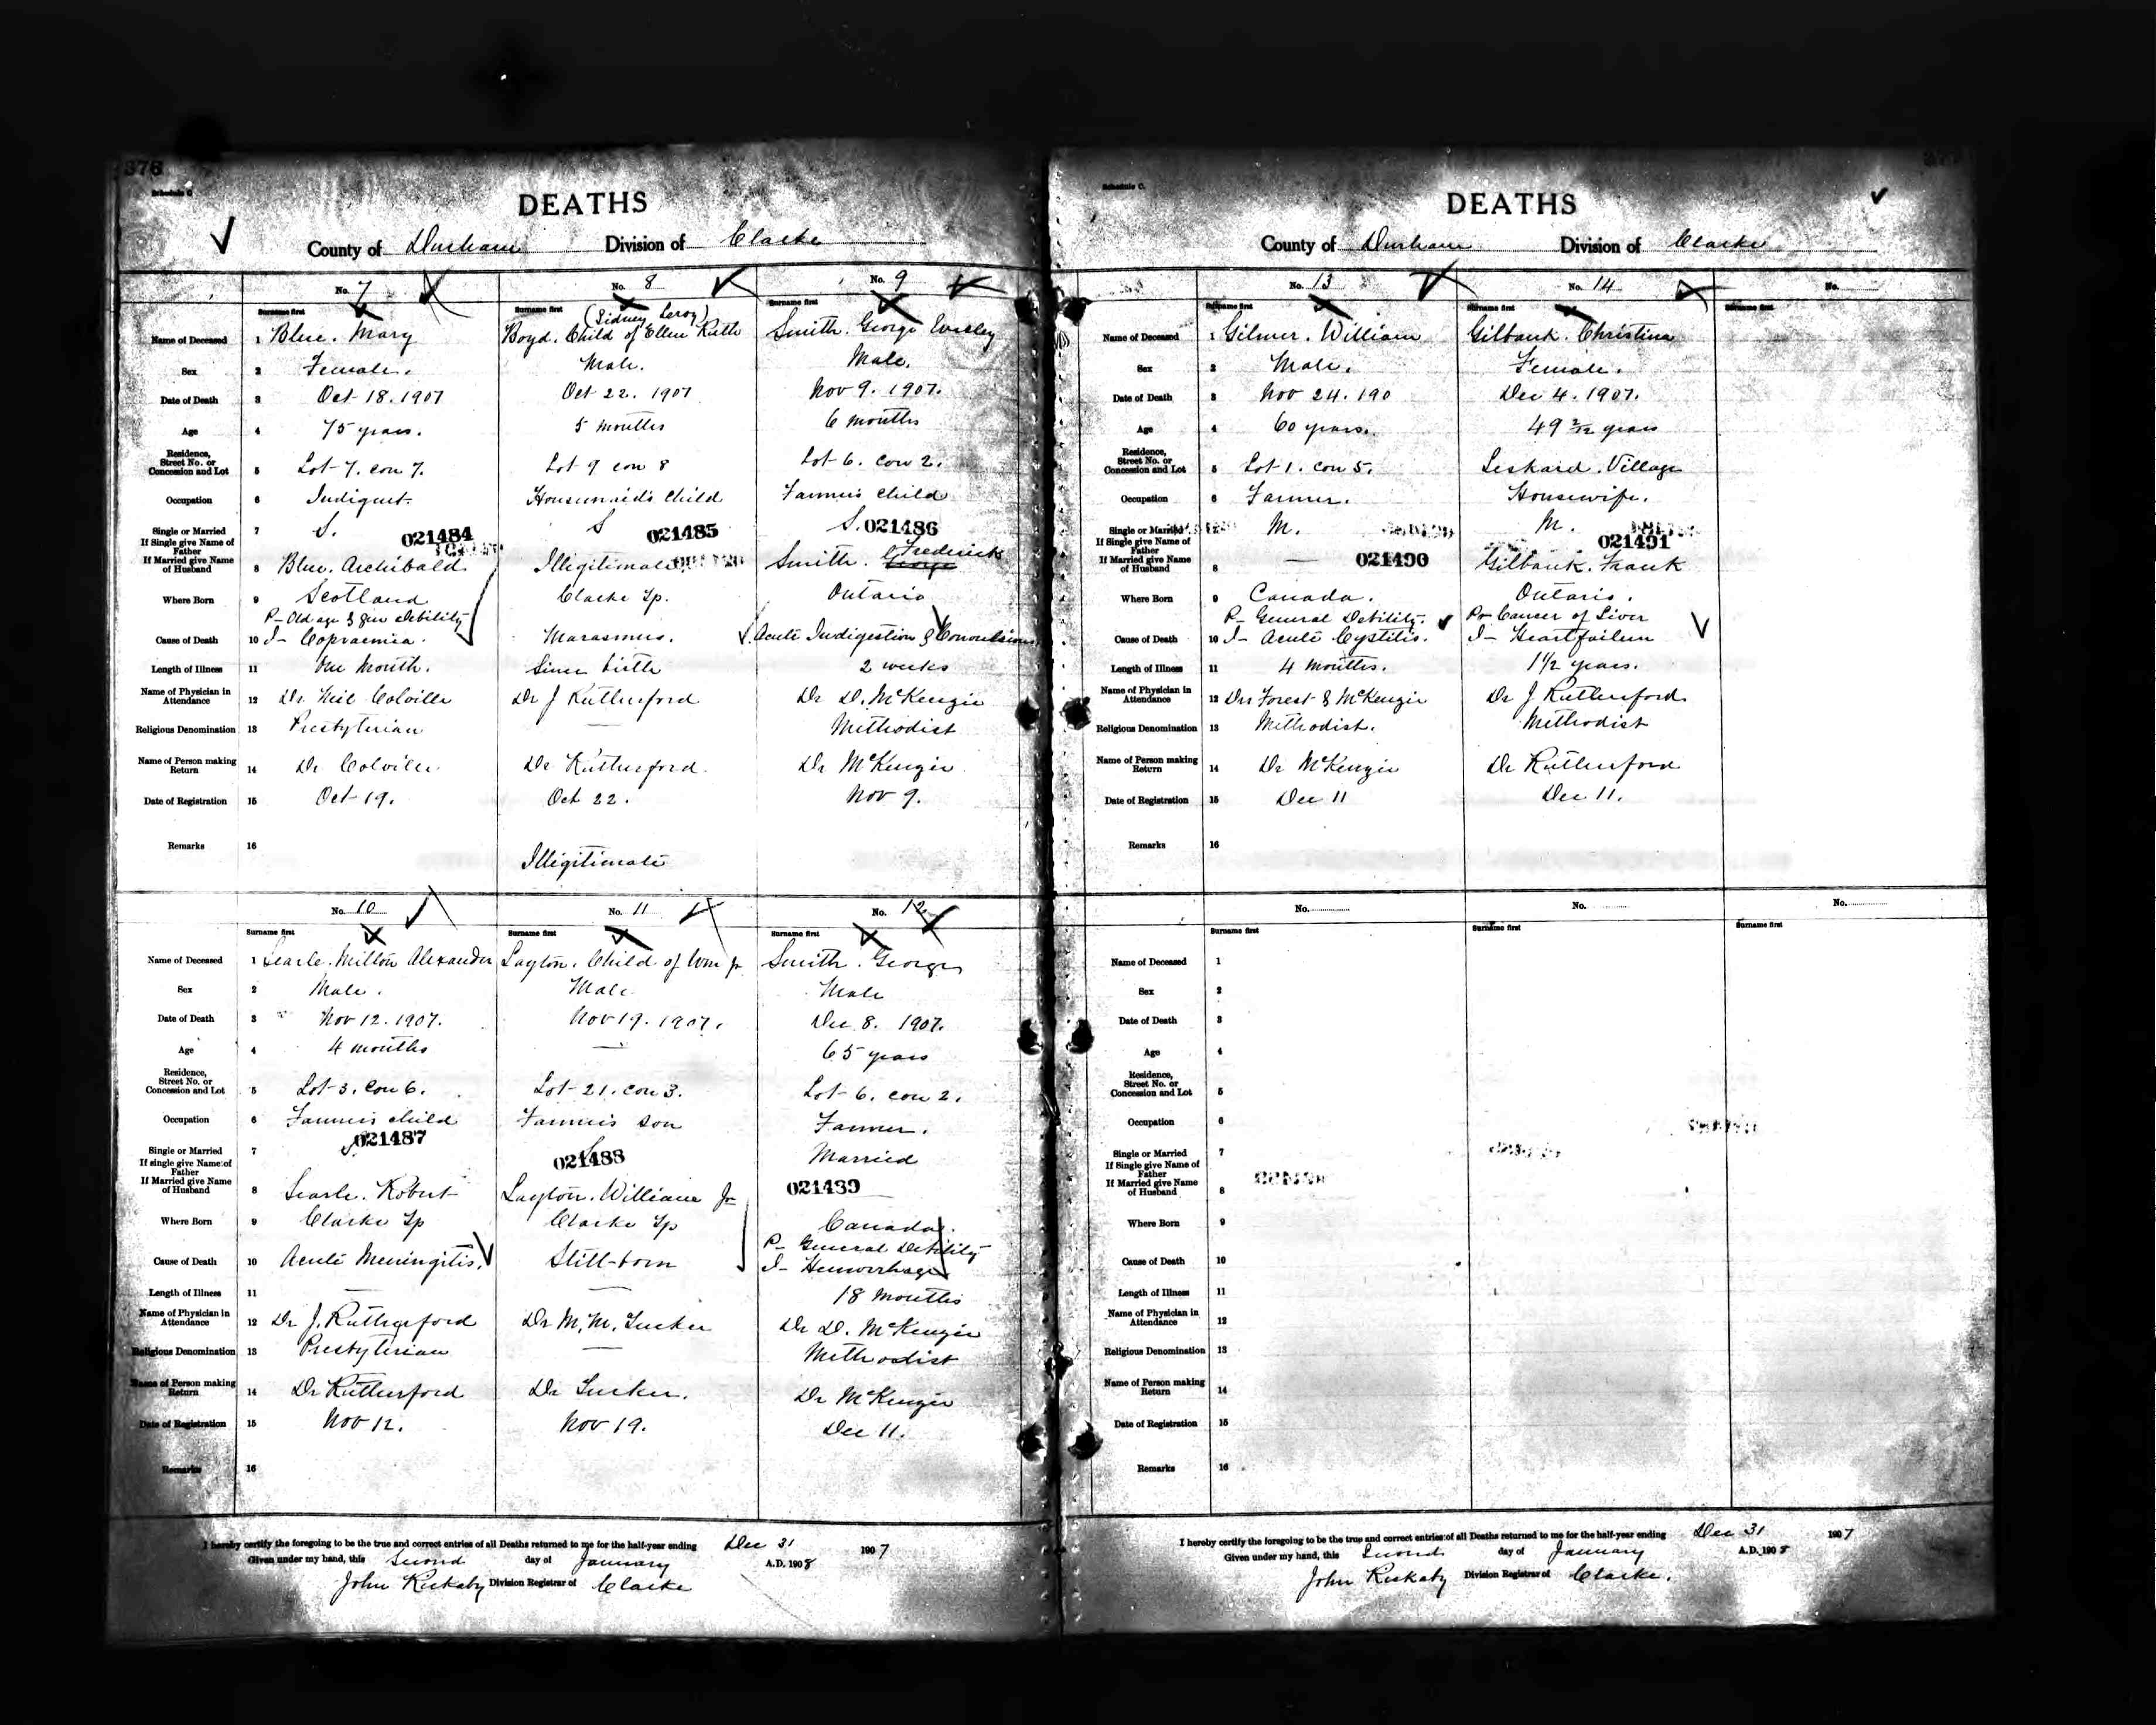 376
Schedule C
DEATHS
County of Durham Division of Clarke
No. 7 No. 8 No. 9
Surname first Surname first Surname first
(Sidney Leroy)
Name of Deceased 1 Blue. Mary Boyd. Child of Ellen Ruth Smith. George Wesley
Sex 2 Female. Male. Male.
Date of Death 3 Oct 18. 1907 Oct 22. 1907 Nov 9. 1907.
Age 4 75 years. 5 months 6 months
Residence, Street No. or Concession and Lot 5 Lot 7. con 7. Lot 9 con 8 Lot 6. con 2.
Occupation 6 Indigent. Housemaid's Child Farmer's child
Single or Married 7 S. 021484 S 021485 S. 021486
If Single give Name of Father
If Married give Name of Husband 8 Blue. Archibald Illigitimate Smith. Frederick George
Where Born 9 Scotland Clarke Tp. Ontario
P- Old age & Gen debility
Cause of Death 10 I- Copraemia. Marasmus. Acute Indigestion & Convulsions
Length of Illness 11 One Month. Since birth 2 weeks
Name of Physician in Attendance 12 Dr. Neil Colville Dr J Rutherford Dr D. McKenzie
Religious Denomination 13 Presbyterian — Methodist
Name of Person making Return 14 Dr Colville Dr Rutherford. Dr McKenzie
Date of Registration 15 Oct 19. Oct 22. Nov 9.
Remarks 16 Illigitimate
No. 10 No. 11 No. 12
Surname first Surname first Surname first
Name of Deceased 1 Searle. Milton Alexander Layton. Child of Wm Jr Smith. George
Sex 2 Male. Male Male
Date of Death 3 Nov 12. 1907. Nov 19. 1907. Dec 8. 1907.
Age 4 4 months — 65 years
Residence, Street No. or Concession and Lot 5 Lot 3. con 6. Lot 21. con 3. Lot 6. con 2.
Occupation 6 Farmer's child Farmer's son Farmer.
Single or Married 7 S 021487 S 021488 Married
If single give Name of Father
If Married give Name of Husband 8 Searle. Robert Layton. William Jr 021489 —
Where Born 9 Clarke Tp Clarke Tp Canada.
P- General Debility
Cause of Death 10 Acute Meningitis. Still-born I- Hemorrhage
Length of Illness 11 — — 18 Months
Name of Physician in Attendance 12 Dr J. Rutherford Dr M. M. Tucker Dr D. McKenzie
Religious Denomination 13 Presbyterian — Methodist
Name of Person making Return 14 Dr Rutherford Dr Tucker. Dr McKenzie
Date of Registration 15 Nov 12. Nov 19. Dec 11.
Remarks 16
I hereby certify the foregoing to be the true and correct entries of all Deaths returned to me for the half-year ending Dec 31 1907
Given under my hand, this Second day of January A.D. 1908
John Rickaby Division Registrar of Clarke
Schedule C.
DEATHS
County of Durham Division of Clarke
No. 13 No. 14 No.
Surname first Surname first Surname first
Name of Deceased 1 Gilmer. William Gilbank. Christina
Sex 2 Male. Female.
Date of Death 3 Nov 24. 190 Dec 4. 1907.
Age 4 60 years. 49 2/12 years
Residence, Street No. or Concession and Lot 5 Lot 1. con 5. Leskard. Village
Occupation 6 Farmer. Housewife.
Single or Married 7 M. M.
If Single give Name of Father 021491
If Married give Name of Husband 8 — 021490 Gilbank. Frank
Where Born 9 Canada. Ontario.
P- General Debility. P- Cancer of Liver
Cause of Death 10 I- Acute Cystitis. I- Heart failure
Length of Illness 11 4 months. 1 1/2 years.
Name of Physician in Attendance 12 Drs Forest & McKenzie Dr J. Rutherford
Religious Denomination 13 Methodist. Methodist
Name of Person making Return 14 Dr McKenzie Dr Rutherford
Date of Registration 15 Dec 11 Dec 11.
Remarks 16
No. No. No.
Surname first Surname first Surname first
Name of Deceased 1
Sex 2
Date of Death 3
Age 4
Residence, Street No. or Concession and Lot 5
Occupation 6
Single or Married 7
If Single give Name of Father
If Married give Name of Husband 8
Where Born 9
Cause of Death 10
Length of Illness 11
Name of Physician in Attendance 12
Religious Denomination 13
Name of Person making Return 14
Date of Registration 15
Remarks 16
I hereby certify the foregoing to be the true and correct entries of all Deaths returned to me for the half-year ending Dec 31 1907
Given under my hand, this Second day of January A.D. 1908
John Rickaby Division Registrar of Clarke.